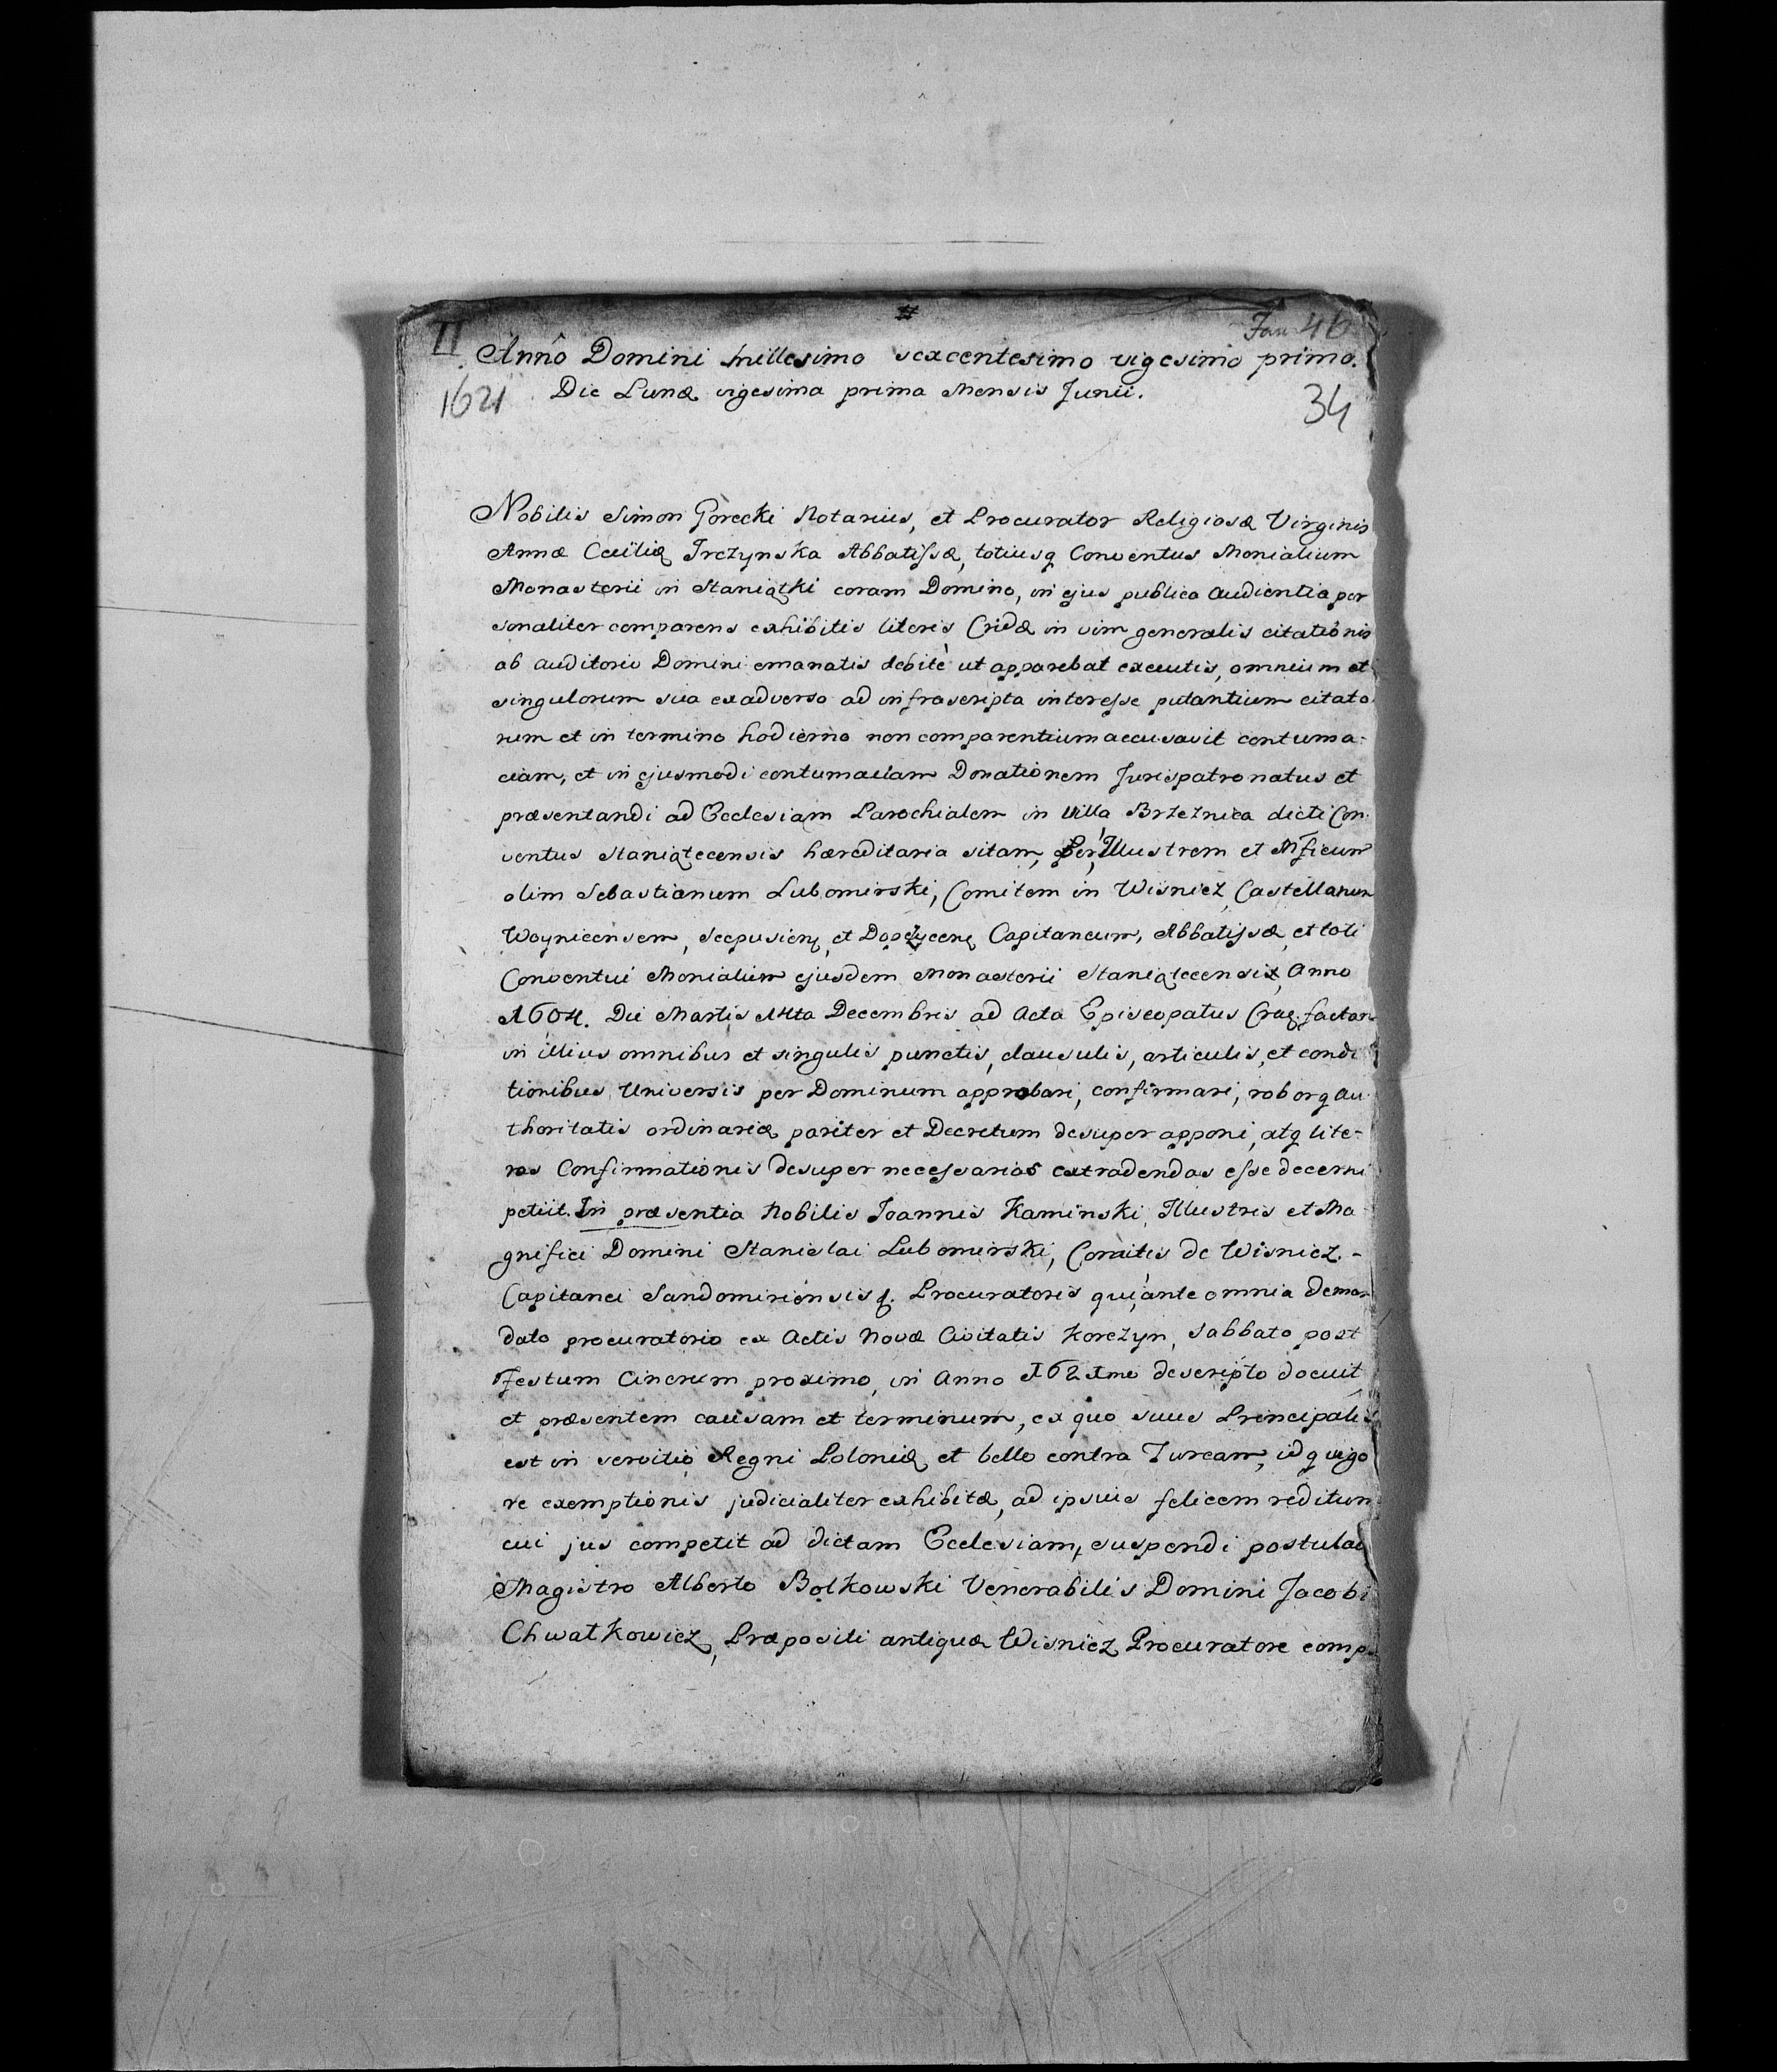 II # Fan 46
Annô Domini millesimo sexcentesimo vigesimo primo.
1621 Die Lunæ vigesima prima Mensis Junii. 34
Nobilis Simon Gorecki Notarius, et Procurator Religiosæ Virginis
Annæ Cæciliæ Trczynska Abbatissæ, totiusq Conventus Monialium
Monasterii in Staniątki coram Domino, in ejus publica audientia per
sonaliter comparens exhibitis literis Cridæ in vim generalis citationis
ab auditorio Domini emanatis debitè ut apparebat executis, omnium et
singulorum sua exadverso ad infrascripta interesse putantium citato
rum et in termino hodierno non comparentium accusavit contuma-
ciam, et in ejusmodi contumaciam Donationem Jurispatronatus et
præsentandi ad Ecclesiam Parochialem in Villa Brzeznica dicti Con-
ventus Staniątecensis hæreditaria sitam, Per Illustrem et Mficum
olim Sebastianum Lubomirski, Comitem in Wisnicz, Castellanum
Woynicensem, Scepusien, et Dopczycen Capitaneum, Abbatissæ, et toti
Conventui Monialium ejusdem Monasterii Staniątecensis, Anno
1604. Die Martis 14ta Decembris ad Acta Episcopatus Crac. factam
in illius omnibus et singulis punctis, clausulis, articulis, et condi
tionibus Universis per Dominum approbari, confirmari, roborq au-
thoritatis ordinariæ pariter et Decretum desuper apponi, atq lite-
ras Confirmationis desuper necessarias extradendas esse decerni
petiit. In præsentia Nobilis Joannis Kaminski, Illustris et Ma
gnifici Domini Stanislai Lubomirski, Comitis de Wisnicz. -
Capitanei Sandomiriensis q. Procuratoris qui ante omnia de man
dato procuratorio ex Actis Novæ Civitatis Korczyn, Sabbato post
Festum Cinerum proximo, in Anno 1621mo descripto docuit
et præsentem causam et terminum, ex quo suus Principalis
est in servitio Regni Poloniæ et bello contra Turcam, idq vigo
re exemptionis judicialiter exhibitæ, ad ipsius felicem reditum
cui jus competit ad dictam Ecclesiam, suspendi postulat
Magistro Alberto Bolkowski Venerabilis Domini Jacobi
Chwatkowicz, Præpositi antiquæ Wisnicz Procuratore comp